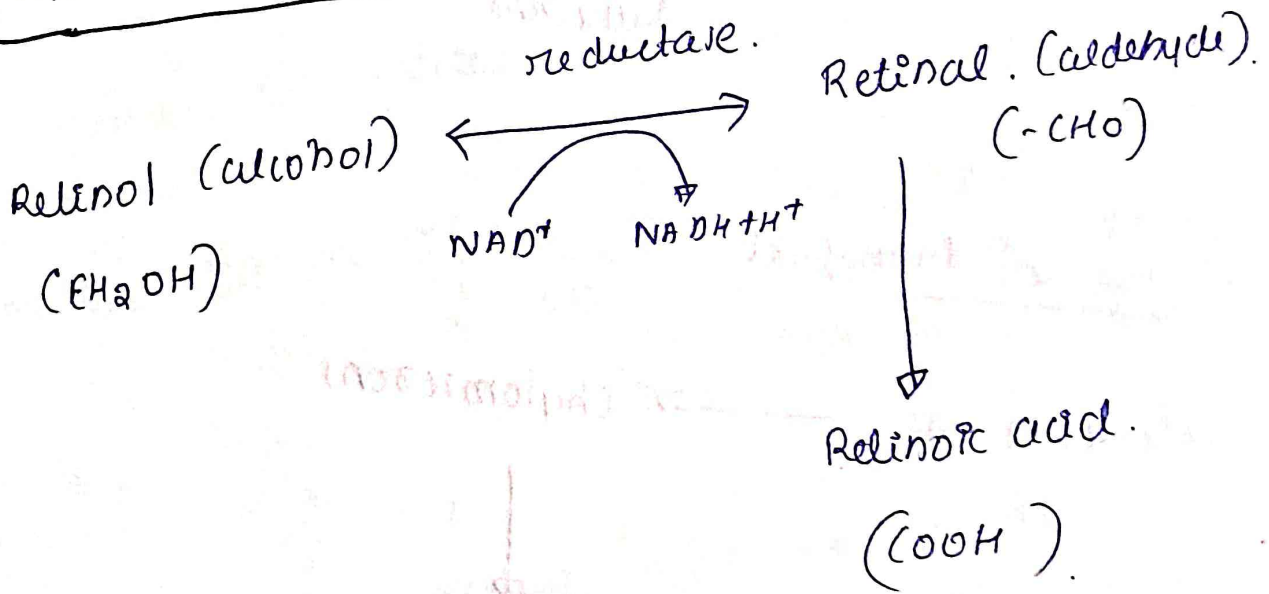 reductase.
Retinal. (aldehyde).
(-CHO)
Retinol (alcohol)
(CH2OH)
NAD+ NADH+H+
Retinoic acid.
(COOH).